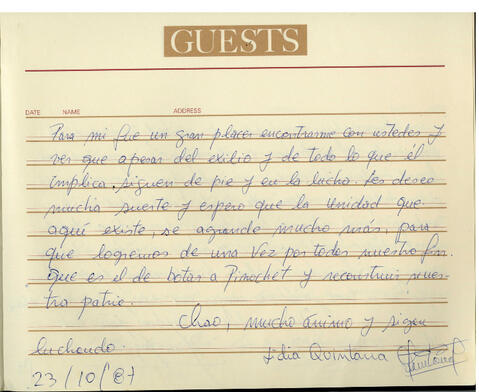 GUESTS
DATE NAME ADDRESS
Para mi fue un gran placer encontrarme con ustedes y
ver que apesar del exilio y de todo lo que él
implica, siguen de pie y en la lucha. Les deseo
mucha suerte y espero que la Unidad que
aquí existe, se agrande mucho más, para
que logremos de una vez por todas nuestro fin.
que es el de botar a Pinochet y reconstruir nues-
tra patria.
Chao, mucho ánimo y sigan
luchando.
Lidia Quintana
23/10/87